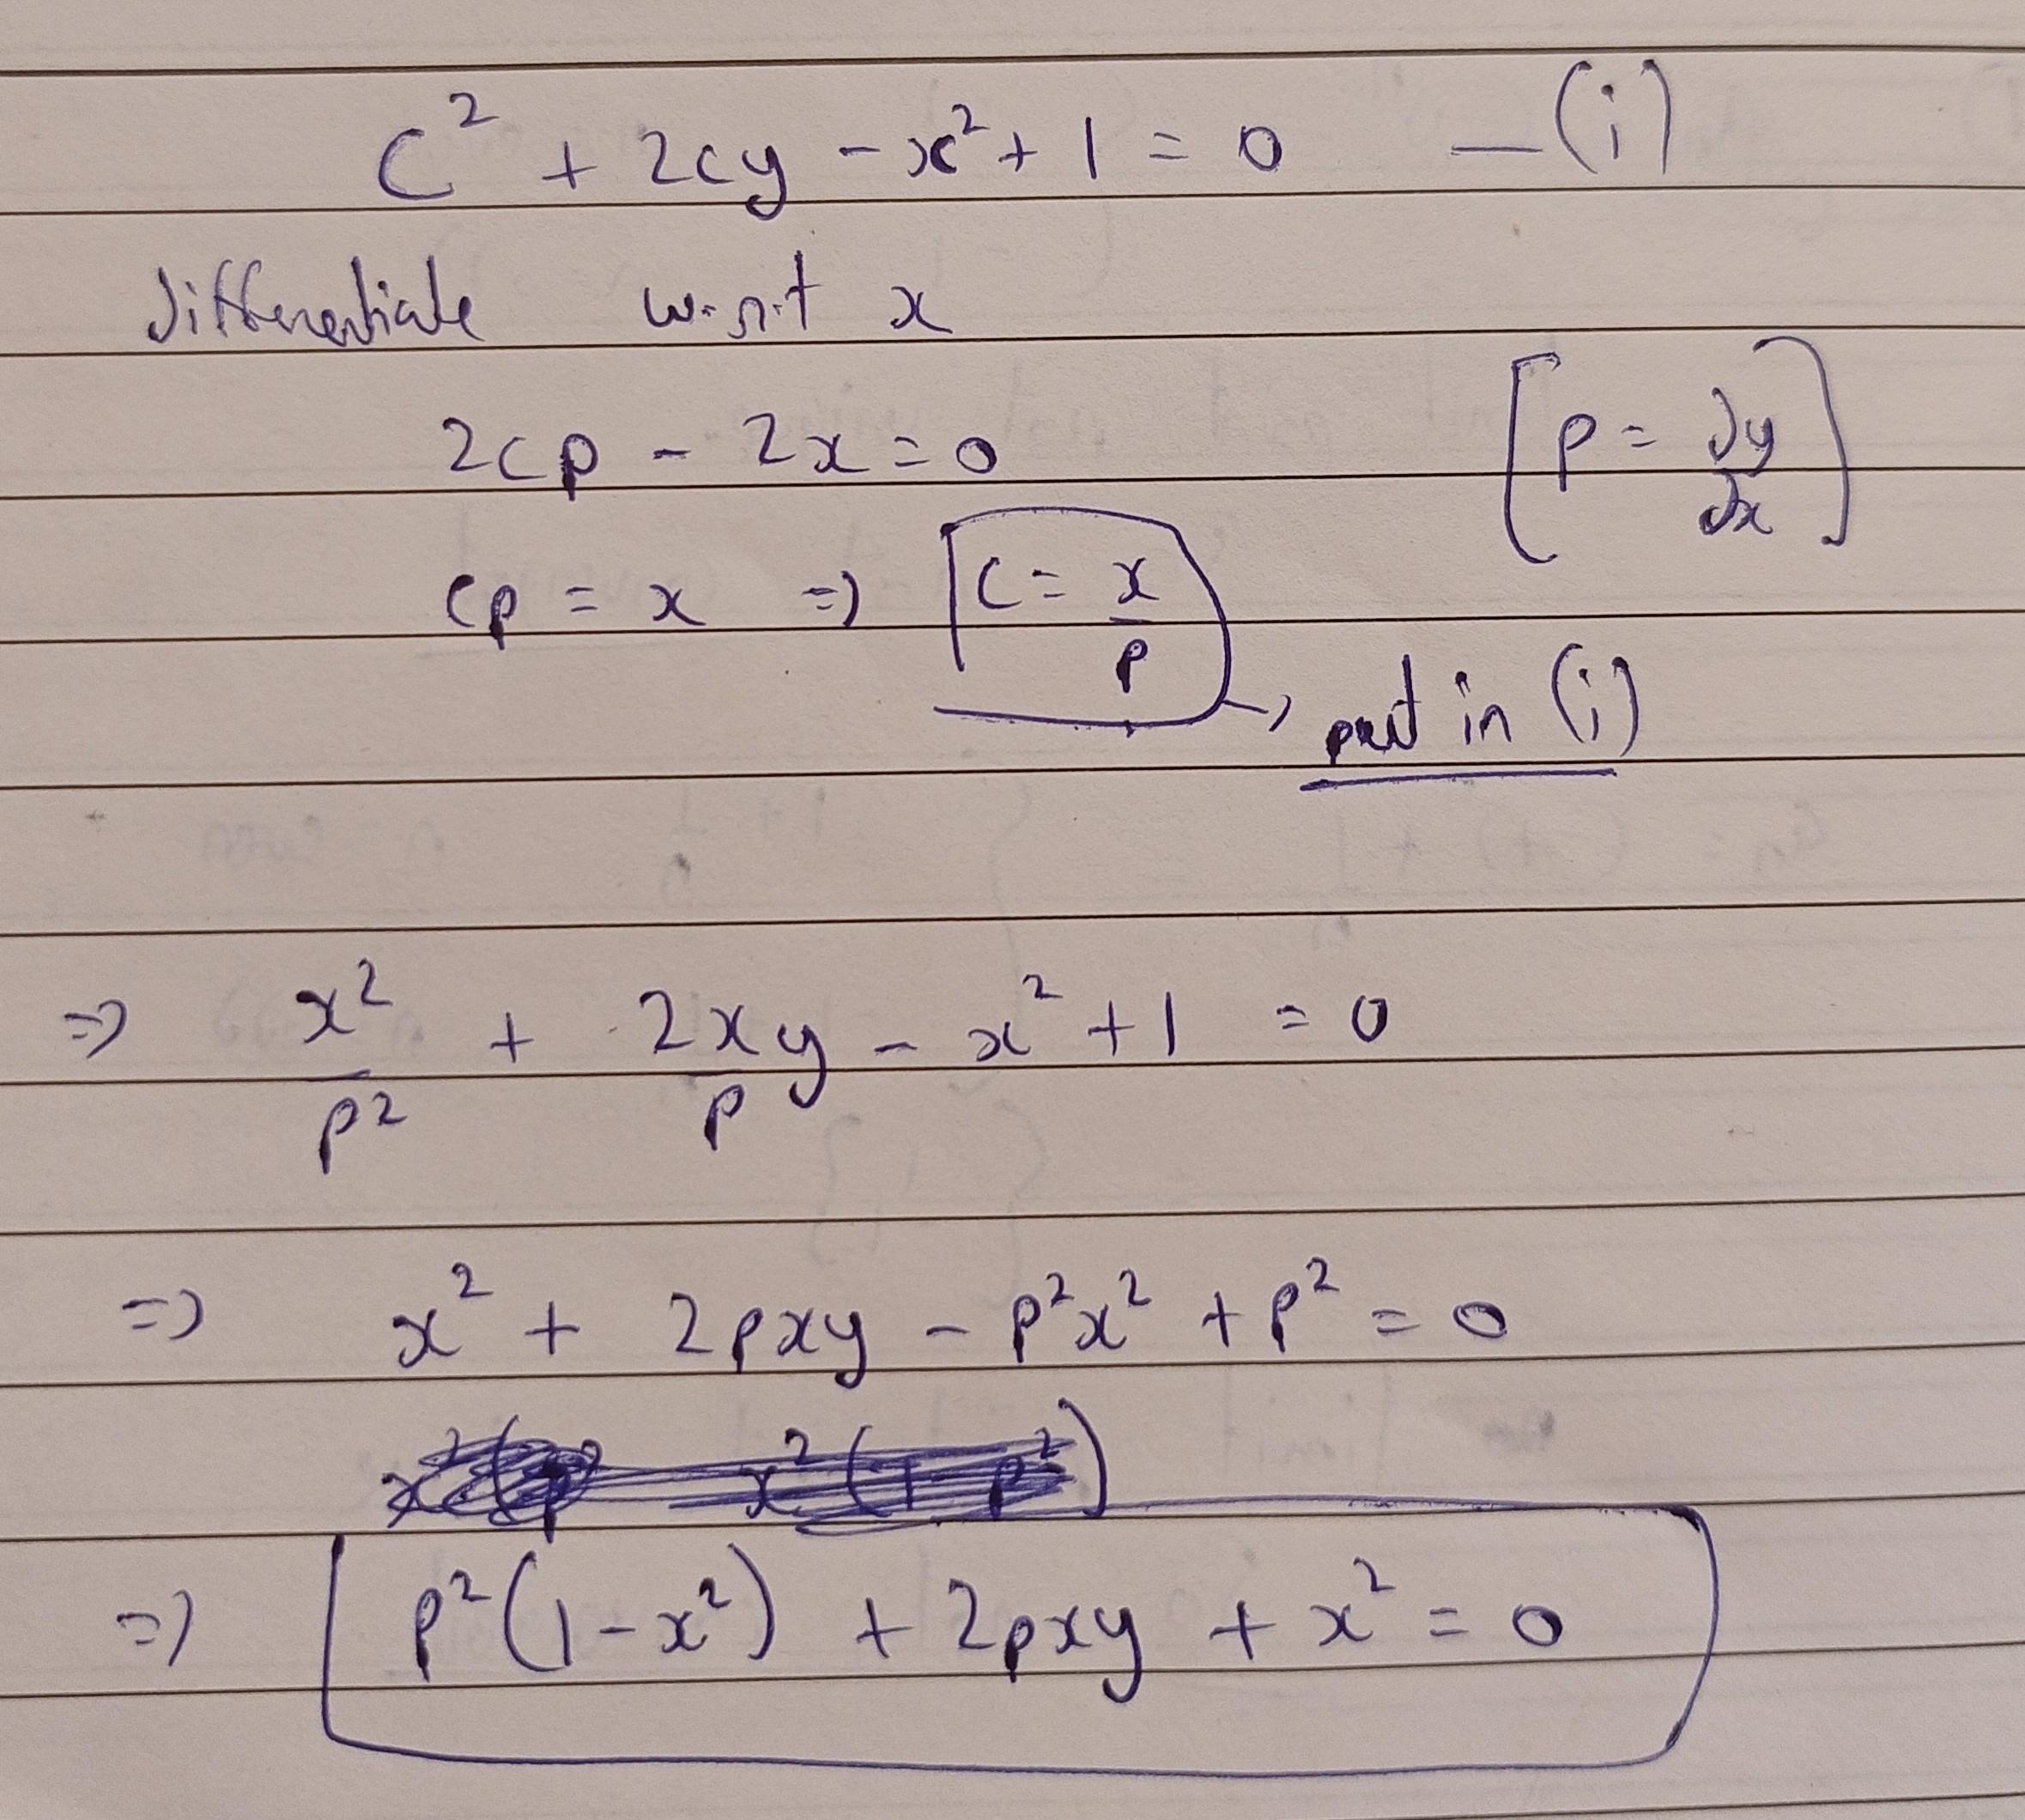 C² + 2cy - x² + 1 = 0 — (i)
differentiate w.r.t x
2cp - 2x = 0 [p = dy/dx]
cp = x => C = x/p
→ put in (i)
=> x²/p² + 2xy/p - x² + 1 = 0
=> x² + 2pxy - p²x² + p² = 0
=> p²(1-x²) + 2pxy + x² = 0